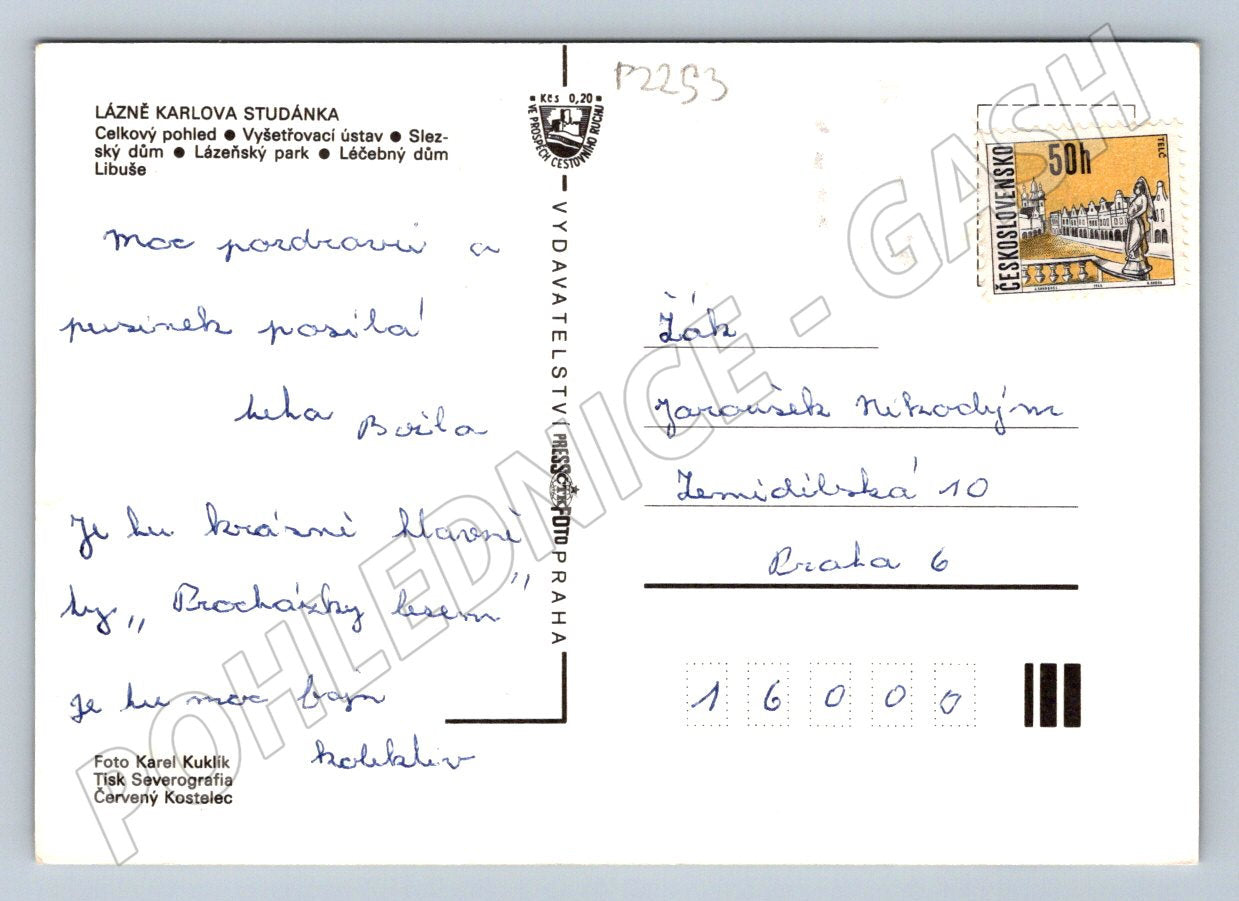 LÁZNĚ KARLOVA STUDÁNKA
Celkový pohled ● Vyšetřovací ústav ● Slez-
ský dům ● Lázeňský park ● Léčebný dům
Libuše
Moc pozdravů a
pusinek posílá
teta Božka
Je tu krásně hlavně
ty „Procházky lesem"
je tu moc fajn
kolektiv
Foto Karel Kuklík
Tisk Severografia
Červený Kostelec
Kčs 0,20
VE PROSPĚCH CESTOVNÍHO RUCHU
VYDAVATELSTVÍ PRESSFOTO PRAHA
ČTK
P2293
ČESKOSLOVENSKO
50h
TELČ
Žák
Jaroušek Nikodým
Zemědělská 10
Praha 6
16000
POHLEDNICE - GASH